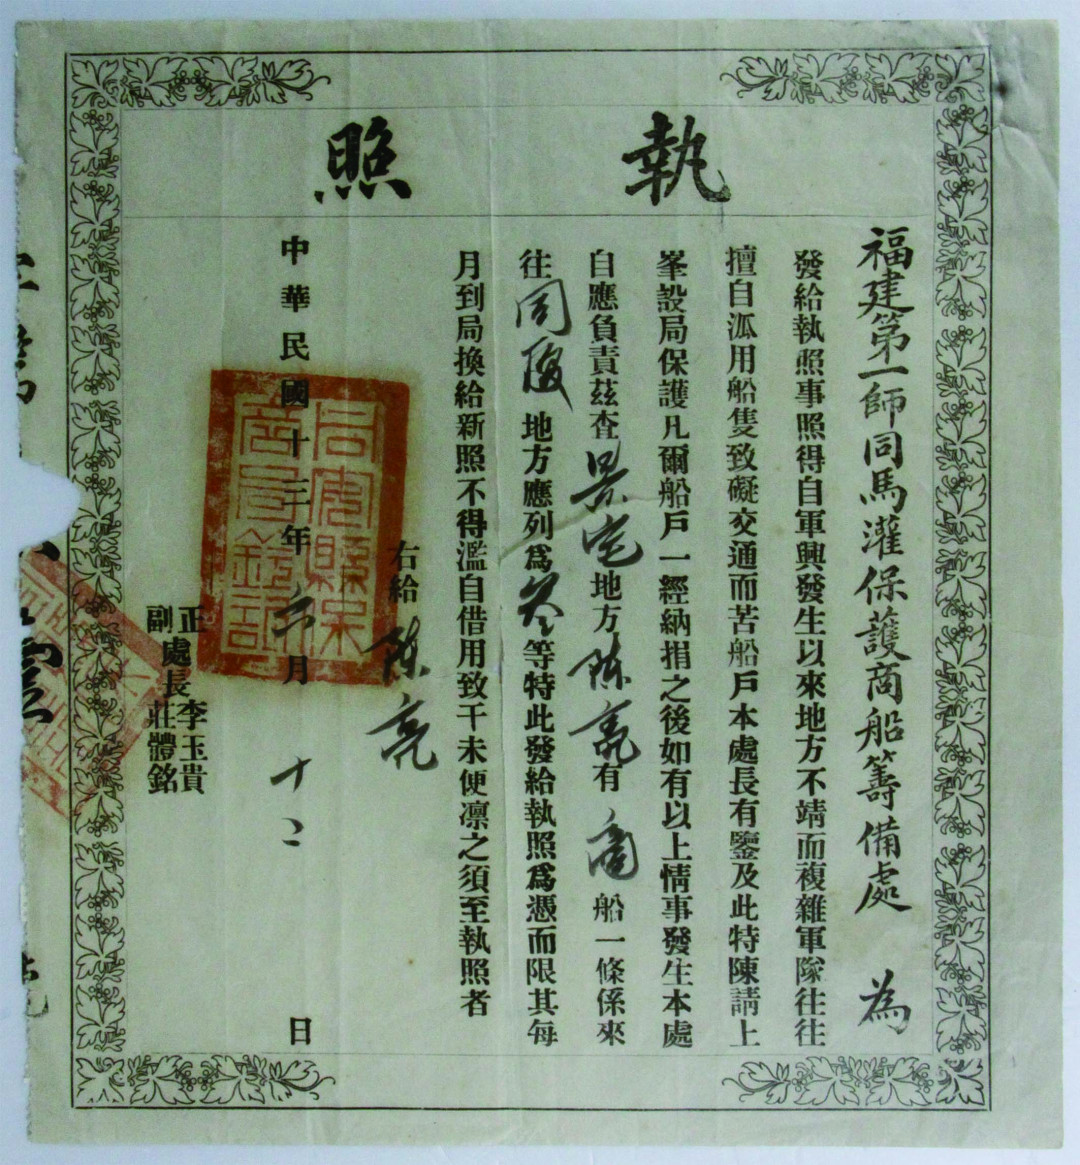 執照
福建第一師同馬灌保護商船籌備處 為
發給執照事照得自軍興發生以來地方不靖而複雜軍隊往往
擅自泒用船隻致礙交通而苦船戶本處長有鑒及此特陳請上
峯設局保護凡爾船戶一經納捐之後如有以上情事發生本處
自應負責茲查 宅地方陈亮有商船一條係來
往同 地方應列為 等特此發給執照為憑而限其每
月到局換給新照不得濫自借用致干未便凛之須至執照者
右給陈亮
中華民國十三年六月十二日
正處長李玉貴
副處長莊體銘